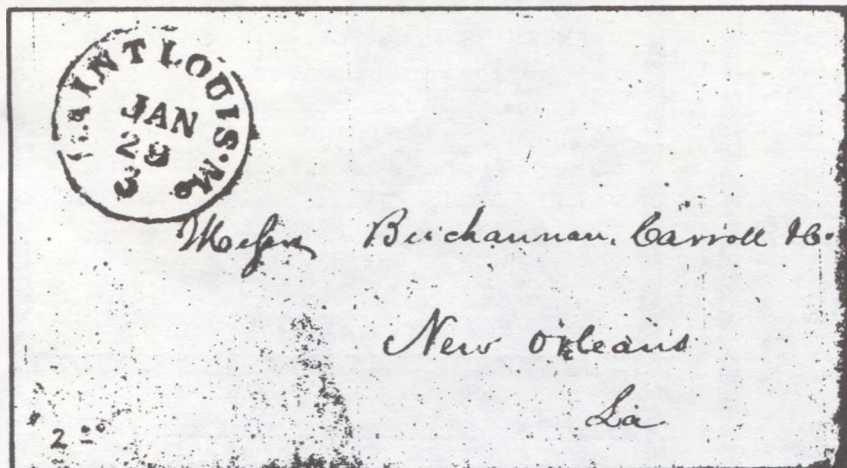 SAINT LOUIS·Mo
JAN
29
3
Messrs Buchannan, Carroll &Co.
New Orleans
La
2 00